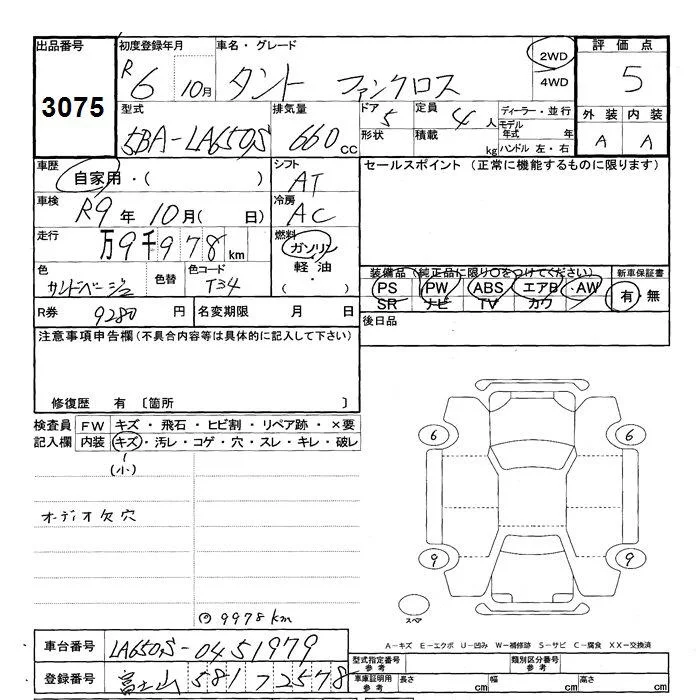 出品番号 3075
初度登録年月 R6 10月
車名・グレード タント ファンクロス
2WD
4WD
評価点 5
外装 内装
A A
型式 5BA-LA650S
排気量 660cc
ドア 5
形状
定員 4人
積載 kg
ディーラー・並行
モデル年式 年
ハンドル 左・右
車歴 自家用・( )
シフト AT
セールスポイント(正常に機能するものに限ります)
車検 R9年10月( 日)
冷房 AC
走行 万9千978km
燃料 ガソリン
軽油
( ・ )
色 サンドベージュ
色替
色コード T34
装備品(純正品に限り○をつけてください)
PS PW ABS エアB ・AW
SR ナビ TV カワ
新車保証書
有・無
R券 9280円
名変期限 月 日
後日品
注意事項申告欄(不具合内容等は具体的に記入して下さい)
修復歴 有 〔箇所 〕
検査員記入欄
FW キズ・飛石・ヒビ割・リペア跡・×要
内装 キズ・汚レ・コゲ・穴・スレ・キレ・破レ
(小)
オーディオ欠穴
6 6
9 9
スペア
9978km
A-キズ E-エクボ U-凹み W-補修跡 S-サビ C-腐食 XX-交換済
車台番号 LA650S-0451979
型式指定番号 参考
類別区分番号 参考
登録番号 富士山 581 フ 2578
車庫証明用 参考
長さ cm 幅 cm 高さ cm